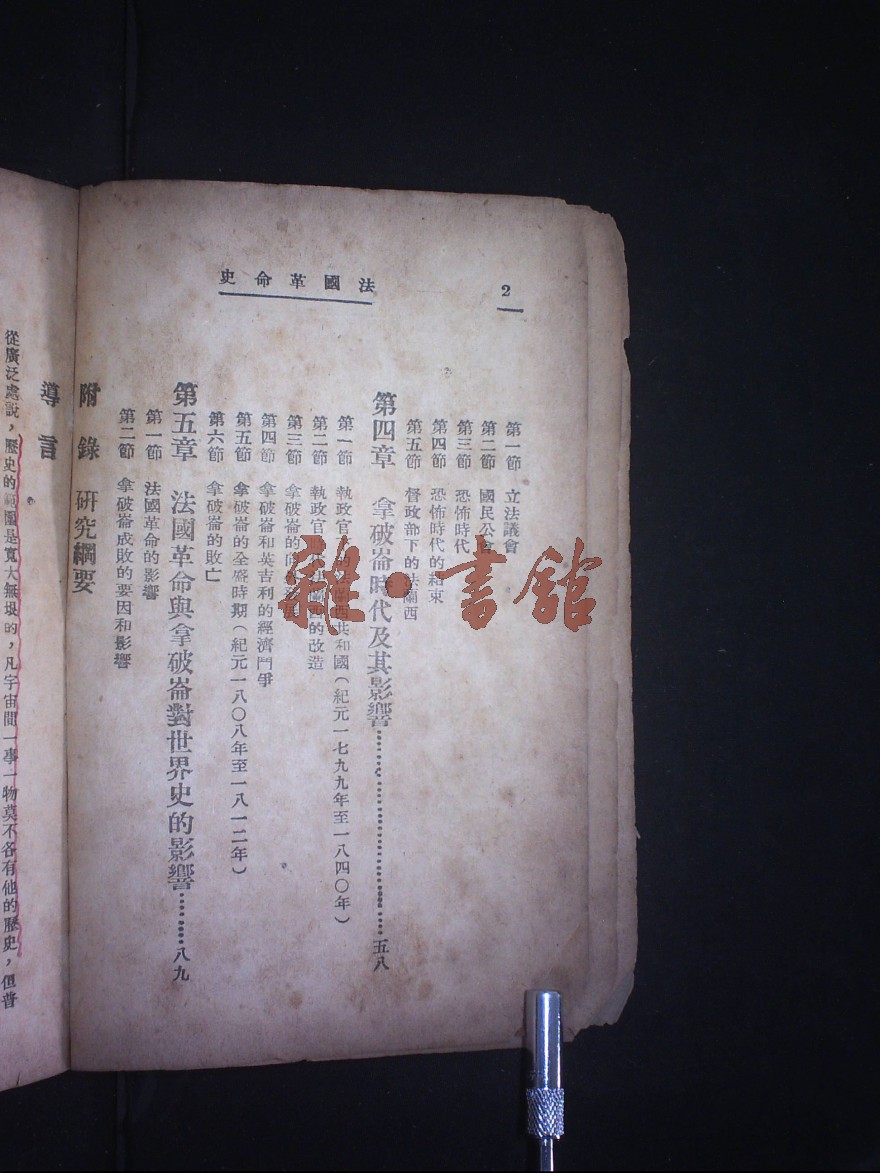 法國革命史
2
第一節 立法議會
第二節 國民公會
第三節 恐怖時代
第四節 恐怖時代的結束
第五節 督政部下的法蘭西
第四章 拿破崙時代及其影響 五八
第一節 執政官 法蘭西共和國(紀元一七九九年至一八四〇年)
第二節 執政官 法蘭西的改造
第三節 拿破崙的
第四節 拿破崙和英吉利的經濟鬥爭
第五節 拿破崙的全盛時期(紀元一八〇八年至一八一二年)
第六節 拿破崙的敗亡
第五章 法國革命與拿破崙對世界史的影響 八九
第一節 法國革命的影響
第二節 拿破崙成敗的要因和影響
附錄 研究綱要
導言
從廣泛處說,歷史的範圍是寬大無垠的,凡宇宙間一事一物莫不各有他的歷史,但普
雜·書館